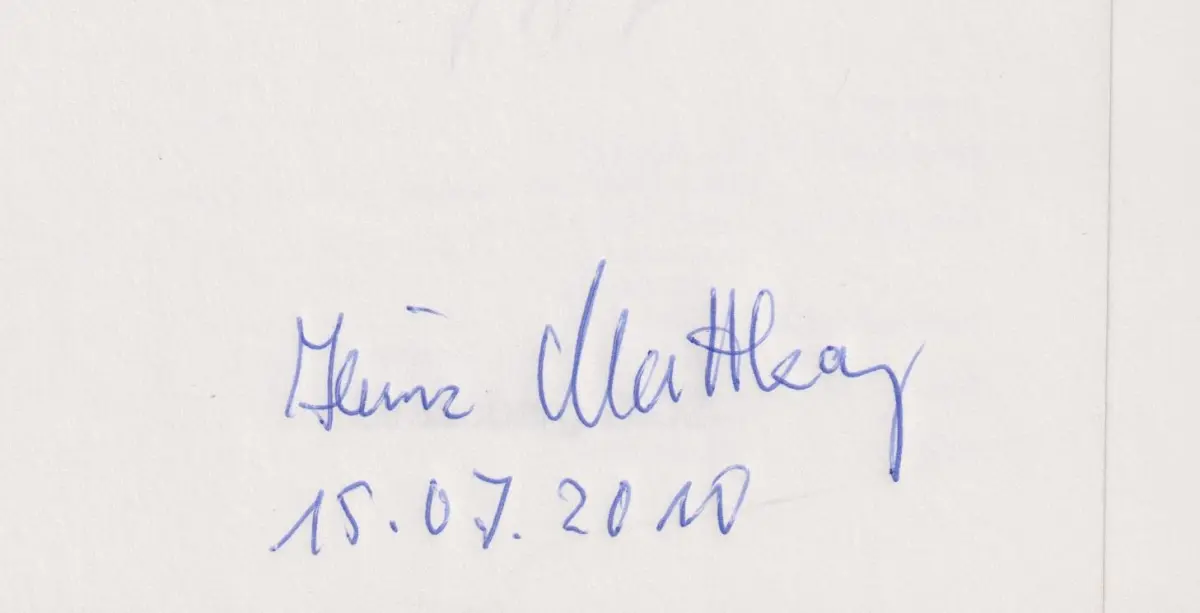 Heinz Mattkay
15.07.2010